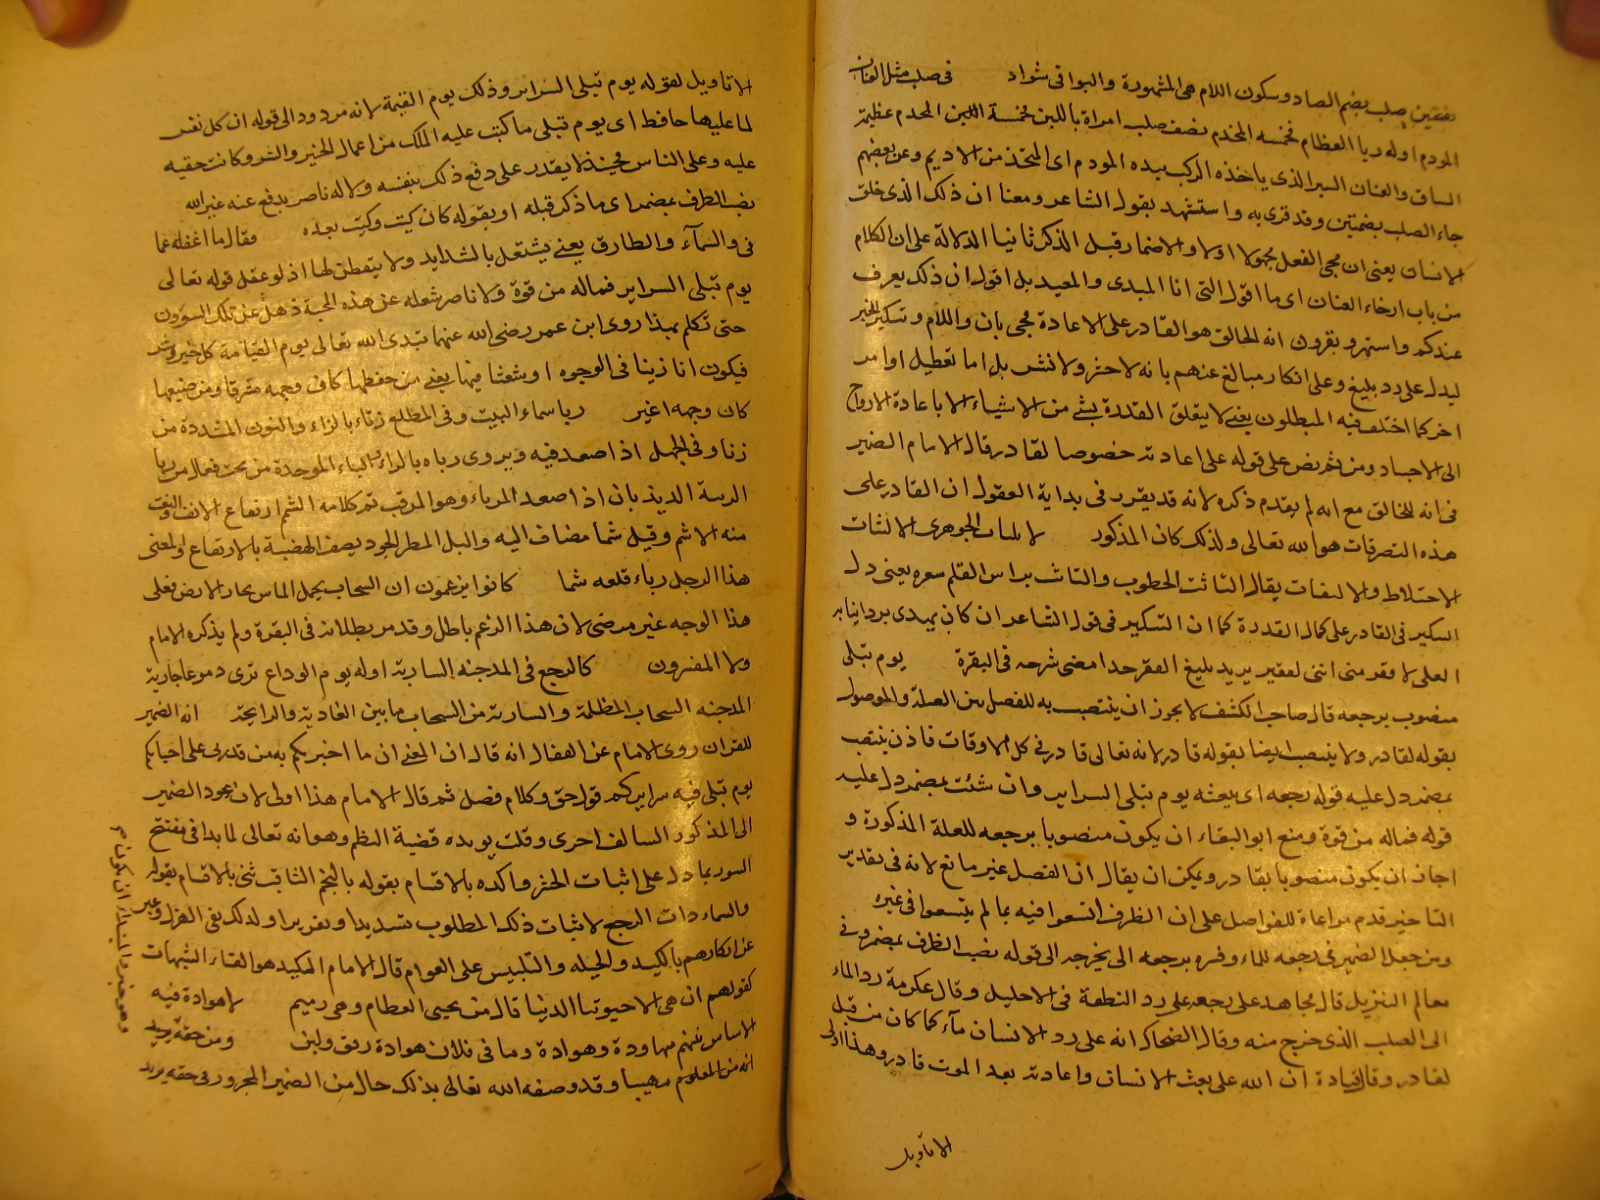 بفتحتين صلب بضم الصاد وسكون اللام هى المشهورة والبواقى شواذ في صلب مثل العنان
المودم اوله ريا العظام فخمة المخدم نصف صلب امراة باللين فخمة اللين المخدم عظيمة
الساق والعنان السير الذى ياخذه الركب بيده المودم اى المتخذ من الاديم وعن بعضهم
جاء الصلب بضمتين وقد قرى به واستشهد بقول الشاعر ومعنا ان ذلك الذى خلق
الانسان يعنى ان مجى الفعل مجهولا اولا والاضمار قبل الذكر ثانيا الدلالة على ان الكلام
من باب ارخاء العنان اى ما اقول التى انا المبدى والمعيد بل اقول ان ذلك يعرف
عندكم واستهر ويقرون انه الخالق هو القادر على الاعادة فجى بان واللام وتنكير الخبر
ليدل على رد بليغ وعلى انكار مبالغ عنهم بانه لاحشر ولا نشر بل اما تعطيل اوامر
اخر كما اختلف فيه المبطلون يعنى لا يتعلق القدرة بشئ من الاشياء الا باعادة الارواح
الى الاجساد ومن ثم نص على قوله على اعادته خصوصا لقادر قال الامام الضمير
فى انه للخالق مع انه لم يقدم ذكره لانه قد يقرر فى بداية العقول ان القادر على
هذه التصرفات هو الله تعالى ولذلك كان المذكور الجوهرى الالتياث
الاختلاط والالتفات يقال التاثت الخطوب والتاث براس القلم شعره يعنى دل
التنكير فى القادر على كمال القدرة كما ان التنكير فى قول الشاعر ان كان يهدى برد انيابها
العلى لا فقر منى اننى لفقير يريد بليغ الفقر حدا مضى شرحه فى البقرة يوم تبلى
منصوب برجعه قال صاحب الكشف لا يجوز ان ينتصب به للفصل بين الصلة والموصول
بقوله لقادر ولا ينتصب ايضا بقوله قادر لانه تعالى قادر فى كل الاوقات فاذن ينتصب
بمضمر دل عليه قوله رجعه اى يبعثه يوم تبلى السراير وان شئت بمضمر دل عليه
قوله فماله من قوة ومنع ابو البقاء ان يكون منصوبا برجعه للعلة المذكورة و
اجاز ان يكون منصوبا بقادر ويمكن ان يقال ان الفصل غير مانع لانه فى تقدير
التاخير قدم مراعاة للفواصل على ان الظرف اتسعوا فيه بما لم يتسعوا فى غيره
ومن جعل الضمير فى رجعه للماء وفسره برجعه الى يخرجه الى قوله نصب الظرف بمضمر و فى
معالم التنزيل قال مجاهد على رجعه على رد النطفة فى الاحليل وقال عكرمة رد الماء
الى الصلب الذى خرج منه وقال الضحاك انه على رد الانسان ماء كما كان من قبل
لقادر وقال قتادة ان الله على بعث الانسان واعادته بعد الموت قادر وهذا اولى
الاتاويل
الاتاويل لقوله يوم تبلى السراير وذلك يوم القيمة لانه مردود الى قوله ان كل نفس
لما عليها حافظ اى يوم تبلى ما كتب عليه الملك من اعمال الخير والشر وكانت حقيه
عليه وعلى الناس فحينئذ لا يقدر على دفع ذلك بنفسه ولا له ناصر يدفع عنه غير الله
نصب الظرف بمضمر اى ما ذكر قبله او بقوله كان كيت وكيت بعده وقال ما اغفله عما
فى والسماء والطارق يعنى يشتغل بالشدايد ولا يتفطن لها اذ لو عقل قوله تعالى
يوم تبلى السراير فماله من قوة ولا ناصر شغله عن هذه المحبة ذهل عن تلك الشوون
حتى تكلم بهذا روى ابن عمر رضى الله عنهما تبدى الله تعالى يوم القيامة كل خير وشر
فيكون اما زينا فى الوجوه او شعثا فيها يعنى من حفظها كان وجهه مشرقا ومن ضيعها
كان وجهه اغبر ربا سماء البيت وفى المطلع زناء بالزاء والنون المشددة من
زنا وفى الجمل اذا صعد فيه ويروى رباء بالراء والباء الموحدة من تحت فعال من ربا
بان اذا صعد المرباء وهو المرقب تم كلامه الشم ارتفاع الانف والنعت
منه الاشم وقيل شما مضاف اليه والبل المطر الجود يصف الهضبة بالارتفاع والمعنى
هذا الرجل رباء قلعه شما كانوا يزعمون ان السحاب يحمل الماء من بحار الارض فعلى
هذا الوجه غير مرضى لان هذا الزعم باطل وقد مر بطلانه فى البقرة ولم يذكره الامام
ولا المفسرون كالرجع فى المدجنه السارية اوله يوم الوداع ترى دموعا جارية
المدجنه السحاب المظلمة والسارية من السحاب ما بين الغادية والرايحة انه الضمير
للقران روى الامام عن القفال انه قال ان المعنى ان ما اخبركم به من قدرتى على احيايكم
يوم تبلى فيه سرايركم قول حق وكلام فصل ثم قال الامام هذا اولى لان عود الضمير
الى المذكور السالف احرى وقلت يويده قضية النظم وهو انه تعالى لما بدا فى مفتتح
السور بما دل على اثبات الحشر واكده بالاقسام بقوله بالنجم الثاقب ثنى بالاقسام بقوله
والسماء ذات الرجع لاثبات ذلك المطلوب تشديدا وتقريرا ولذلك نفى الهزل وعبر
عن انكارهم بالكيد والحيله والتلبيس على العوام قال الامام المكيد هو القاء الشبهات
كقولهم ان هى الا حيوتنا الدنيا قال من يحيى العظام وهى رميم لا هوادة فيه
الاساس بينهم مهاودة وهوادة وما فى فلان هوادة رفق ولين ومن حقه يريد
انه من المعلوم مهيبا وقد وصفه الله تعالى بذلك حال من الضمير المجرور فى حقه يريد
وهو خبر والمبتداء ان يكون م